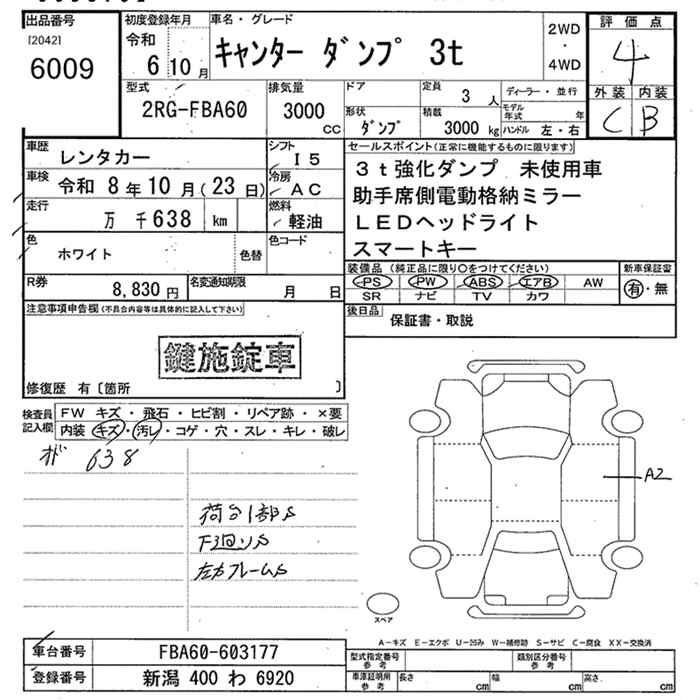 出品番号
[2042]
6009
初度登録年月
令和 6 10 月
車名・グレード
キャンター ダンプ 3t
2WD
・
4WD
評価点
4
外装 内装
C B
型式
2RG-FBA60
排気量
3000 cc
ドア
定員
3 人
形状
ダンプ
積載
3000 kg
ディーラー・並行
モデル年式 年
ハンドル 左・右
車歴
レンタカー
シフト
I5
車検
令和 8 年 10 月 (23 日)
冷房
AC
走行
万 千638 km
燃料
軽油
色
ホワイト
色替
色コード
R券
8,830 円
名変通知期限
月 日
セールスポイント(正常に機能するものに限ります)
3t強化ダンプ 未使用車
助手席側電動格納ミラー
LEDヘッドライト
スマートキー
装備品 (純正品に限り○をつけてください)
PS PW ABS エアB AW
SR ナビ TV カワ
新車保証書
有・無
後日品
保証書・取説
注意事項申告欄(不具合内容等は具体的に記入して下さい)
鍵施錠車
修復歴 有 〔箇所 〕
検査員記入欄
FW キズ ・ 飛石 ・ ヒビ割 ・ リペア跡 ・ ×要
内装 キズ・汚レ・コゲ・穴・スレ・キレ・破レ
オド 638
荷台1部S
下廻りS
左右フレームS
A2
スペア
A-キズ E-エクボ U-凹み W-補修跡 S-サビ C-腐食 XX-交換済
車台番号
FBA60-603177
登録番号
新潟 400 わ 6920
型式指定番号
参考
類別区分番号
参考
車庫証明用
参考
長さ cm
幅 cm
高さ cm